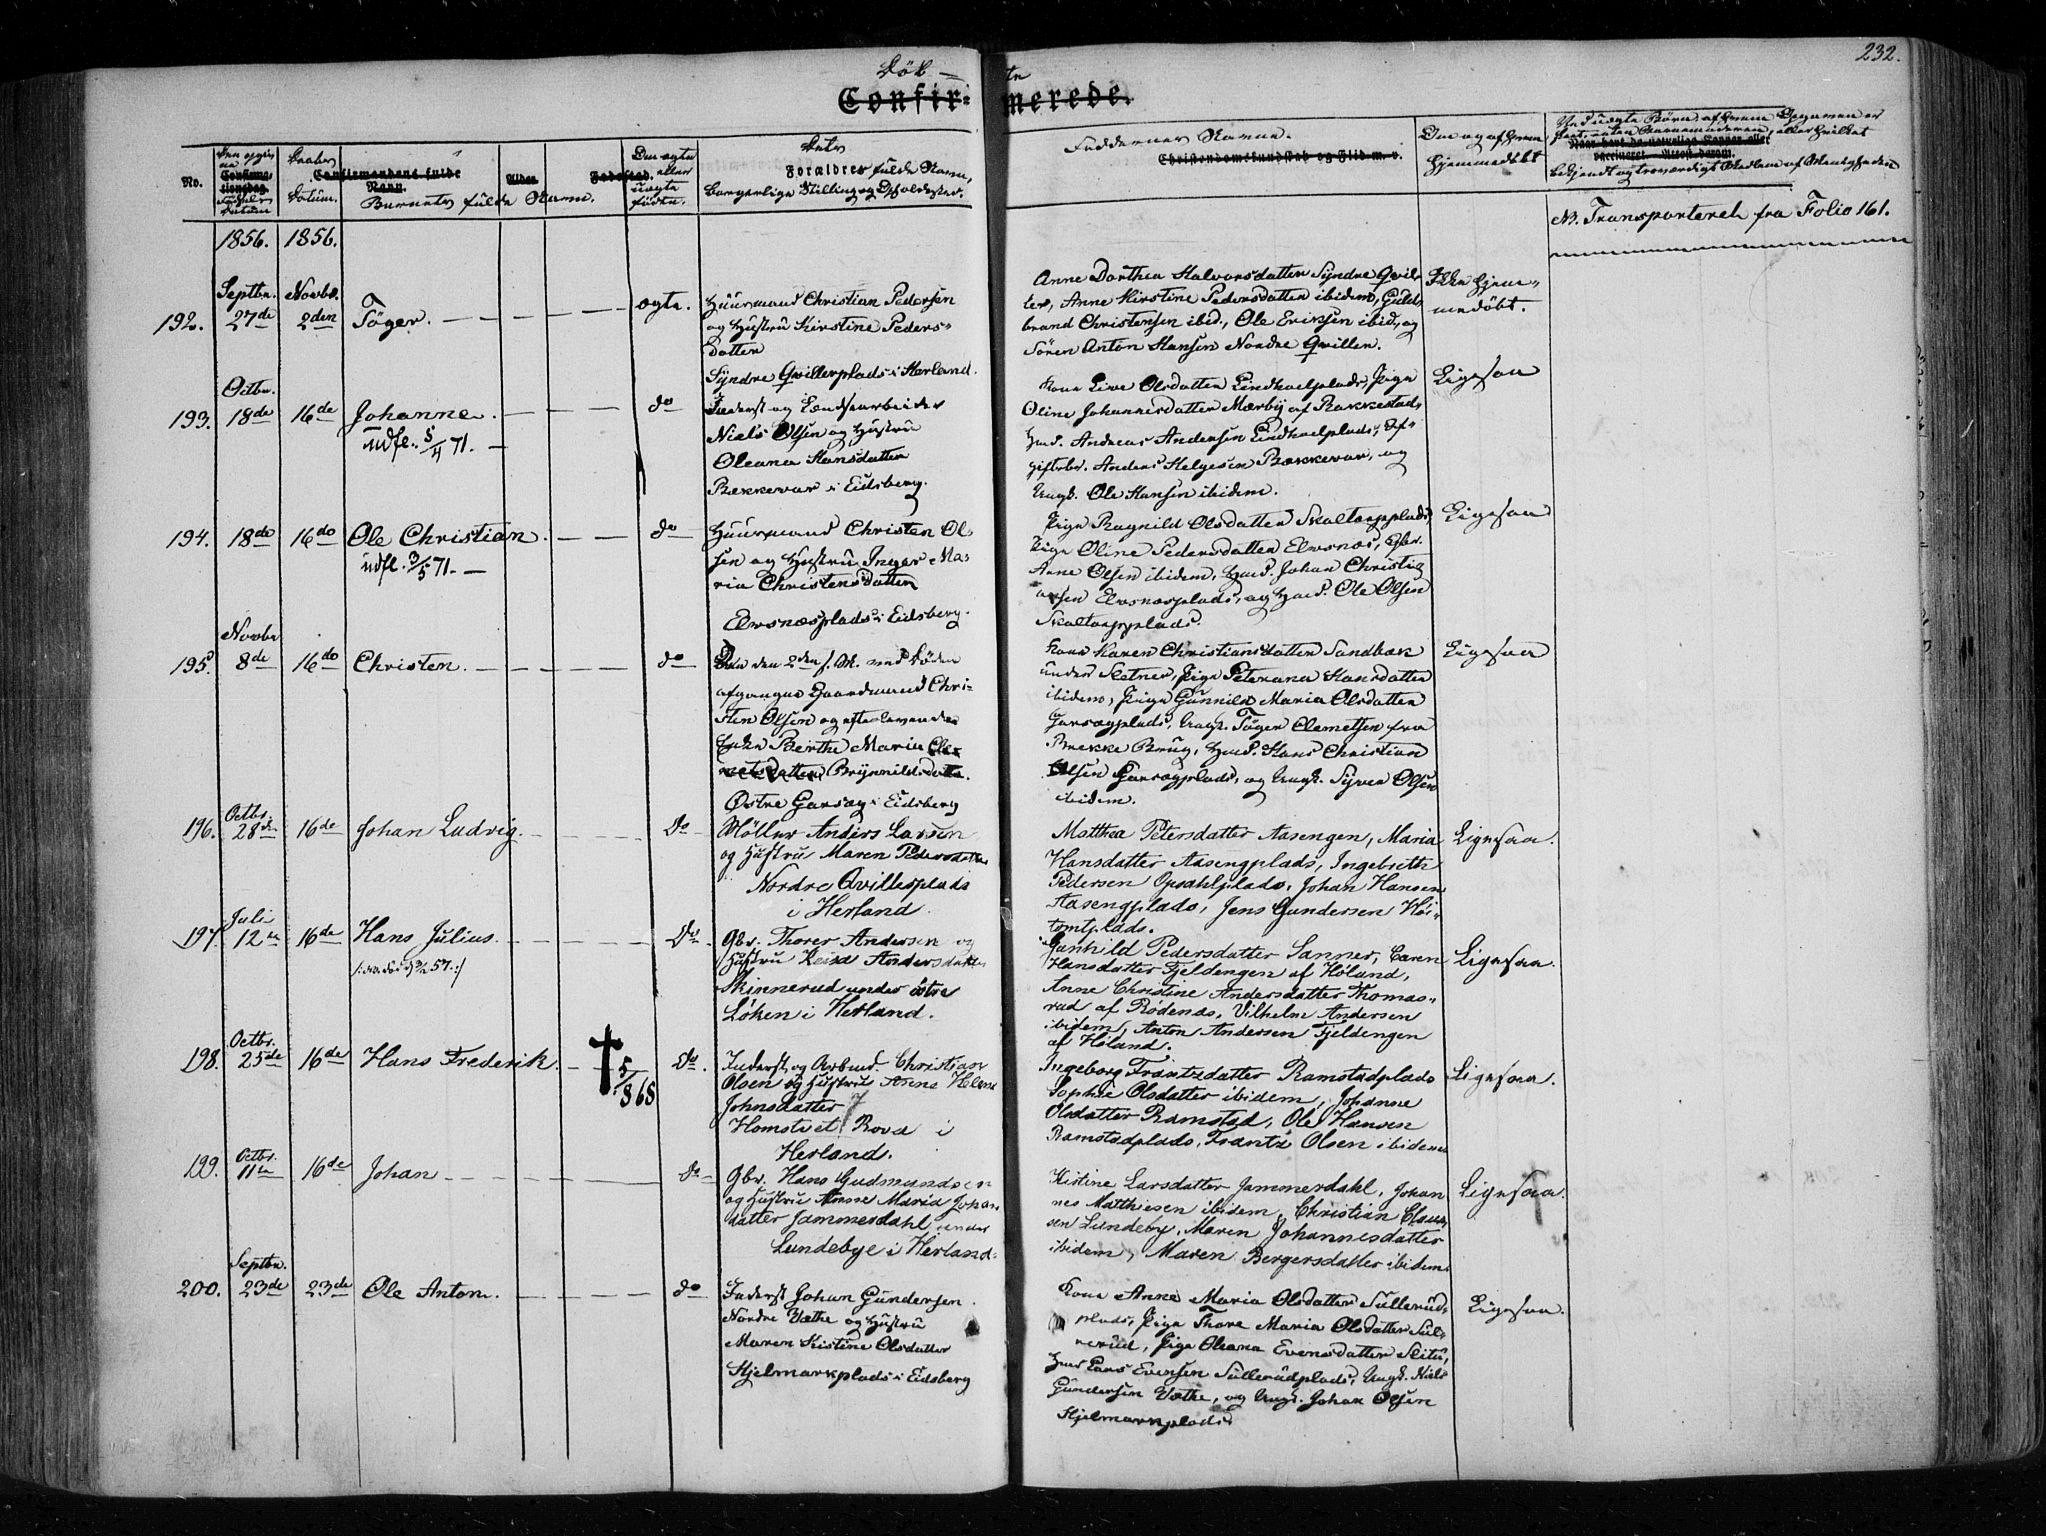 232.
Døb-te
Confirmerede.
No.
Confirmationsdag.
Datum.
Confirmandens fulde Navn.
Barnets fulde Navn.
Alder.
Fødested.
Om ægte eller uægte føden.
Dets
Forældres fulde Navn,
borgerlige Stilling og Opholdssted.
Faddernes Navne.
Christendomskundskab og Flid m. v.
Om og af hvem
hjemmedøbt
Naar, hvor og af hvem
vaccineret.
NB. Transporteret fra Folio 161.
1856. 1856.
192. Septbr. 27de
Novbr. 2den
Töger.
ægte.
Huusmand Christian Pedersen
og Hustru Kirstine Peders-
datter
Syndre Qvillerplads i Herland.
Anne Dorthea Halvorsdatter Syndre Qvil-
ler, Anne Kirstine Pedersdatter ibidem, Guld-
brand Christensen ibid., Ole Eriksen ibid., og
Sören Anton Hansen Nordre Qviller.
Ikke hjem-
medöbt.
193. Octbr. 18de
16de
Johanne.
udfl. 5/4 71.
do
Inderst og
Niels Olsen og Hustru
Oleana Hansdatter
Bækkevar i Eidsberg.
Kone Live Olsdatter Lindhoelplads, Pige
Oline Johannesdatter Mærby af Rakkestad,
Hmd. Andreas Andersen Lindhoelplads,
Anders Helgesen Bækkevar, og
Ungk. Ole Hansen ibidem.
Ligesaa
194. 18de
16de
Ole Christian.
udfl. 3/5 71.
do
Huusmand Christen Ol-
sen og Hustru Inger Ma-
ria Christensdatter
Elvsnæsplads i Eidsberg.
Pige Ragnild Olsdatter Skaltorpplads,
Pige Oline Pedersdatter Elvsnæs, Gbr.
Arne Olsen ibidem, Hmd. Johan Christi-
ansen Elvsnæsplads, og Hmd. Ole Olsen
Skaltorpplads.
Ligesaa
195. Novbr 8de
16de
Christen.
do
Den den 2den f. M. ved Döden
afgangne Gaardmand Chri-
sten Olsen og efterlevende
Enke Berthe Maria Cle-
metsdatter Brynnildsdatter.
Østre Garseg i Eidsberg
Kone Karen Christiansdatter Sandbæk
under Sletner, Pige Peterana Hansdatter
ibidem, Pige Gunnild Maria Olsdatter
Garsegplads, Ungk. Töger Clemetsen fra
Brekke Brug, Hmd. Hans Christian
Olsen Garsegplads, og Ungk. Syver Olsen
ibidem.
Ligesaa
196. Octbr. 28de
16de
Johan Ludvig.
Do
Möller Anders Larsen
og Hustru Maren Pedersdatter
Nordre Qvillesplads
i Herland.
Matthea Petersdatter Aasengen, Maria
Hansdatter Aasengplads, Ingebreth
Pedersen Opsahlplads, Johan Hansen
Aasengplads, Jens Gundersen Höi-
tomtplads.
Ligesaa.
197. Juli 12te
16de
Hans Julius.
Do.
Gbr. Thorer Andersen og
Hustru Andersdatter
Skinnerud under östre
Löken i Herland.
Gunhild Pedersdatter Sanner, Caren
Hansdatter Fjeldengen af Höland,
Anne Christine Andersdatter Thomas-
rud af Rödenæs, Vilhelm Andersen
ibidem, Anton Andersen Fjeldengen
af Höland.
Ligesaa.
198. Octbr. 25de
16de
Hans Frederik.
† 5/8 68
Do.
Inderst og Arbeid. Christian
Olsen og Hustru Anne Helene
Johnsdatter
Homstvet Rova i
Herland.
Ingeborg Frantzdatter Ramstadplads
Sophie Olsdatter ibidem, Johanne
Olsdatter Ramstad, Ole Hansen
Ramstadplads, Frantz Olsen ibidem
Ligesaa.
199. Octbr. 11te
16de
Johan
do
Gbr. Hans Gudmundsen
og Hustru Anne Maria Johan
datter Jammerdahl under
Lundebye i Herland.
Kistine Larsdatter Jammerdahl, Johan
nes Matthiesen ibidem, Christian Claus-
sen Lundeby, Maren Johannesdatter
ibidem, Maren Bergersdatter ibidem.
Ligesaa.
200. Septbr. 23de
23de
Ole Anton.
do
Inderst Johan Gundersen
Nordre Væthe og Hustru
Maren Kistine Olsdatter
Hjelmarkplads i Eidsberg
Kone Anne Maria Olsdatter Sullerud-
plads, Pige Thore Maria Olsdatter Sul-
lerud, Pige Oleana Evensdatter Slitu,
Hmd Lars Eversen Sullerudplads, Ungk. Niels
Gundersen Væthe, og Ungk. Johan Olsen
Hjelmarkplads.
Ligesaa.